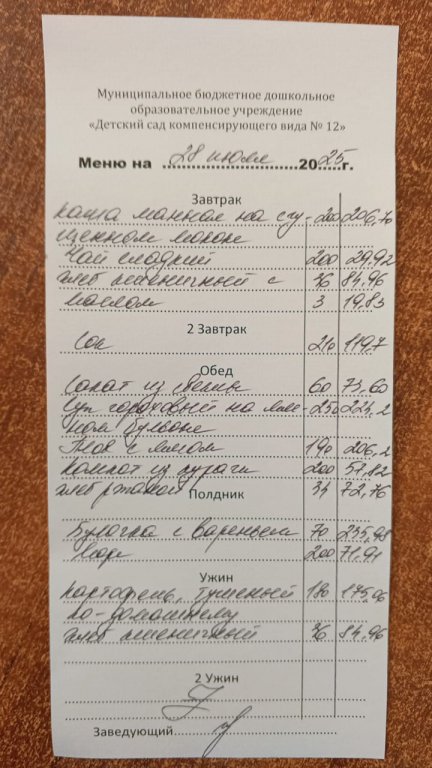 Муниципальное бюджетное дошкольное
образовательное учреждение
«Детский сад компенсирующего вида № 12»
Меню на 28 июля 2025 г.
Завтрак
Каша манная на сгу- 200 206,70
щенном молоке
Чай сладкий 200 29,92
Хлеб пшеничный с 36 84,96
маслом 3 19,83
2 Завтрак
Сок 210 119,7
Обед
Салат из свеклы 60 73,60
Суп гороховый на мяс- 250 224,2
ном бульоне
Плов с мясом 190 206,2
Компот из кураги 200 57,82
Хлеб ржаной 34 72,76
Полдник
Булочка с вареньем 70 235,98
200 71,91
Ужин
Картофель, тушеный 180 175,06
по-домашнему
Хлеб пшеничный 36 84,96
2 Ужин
Заведующий